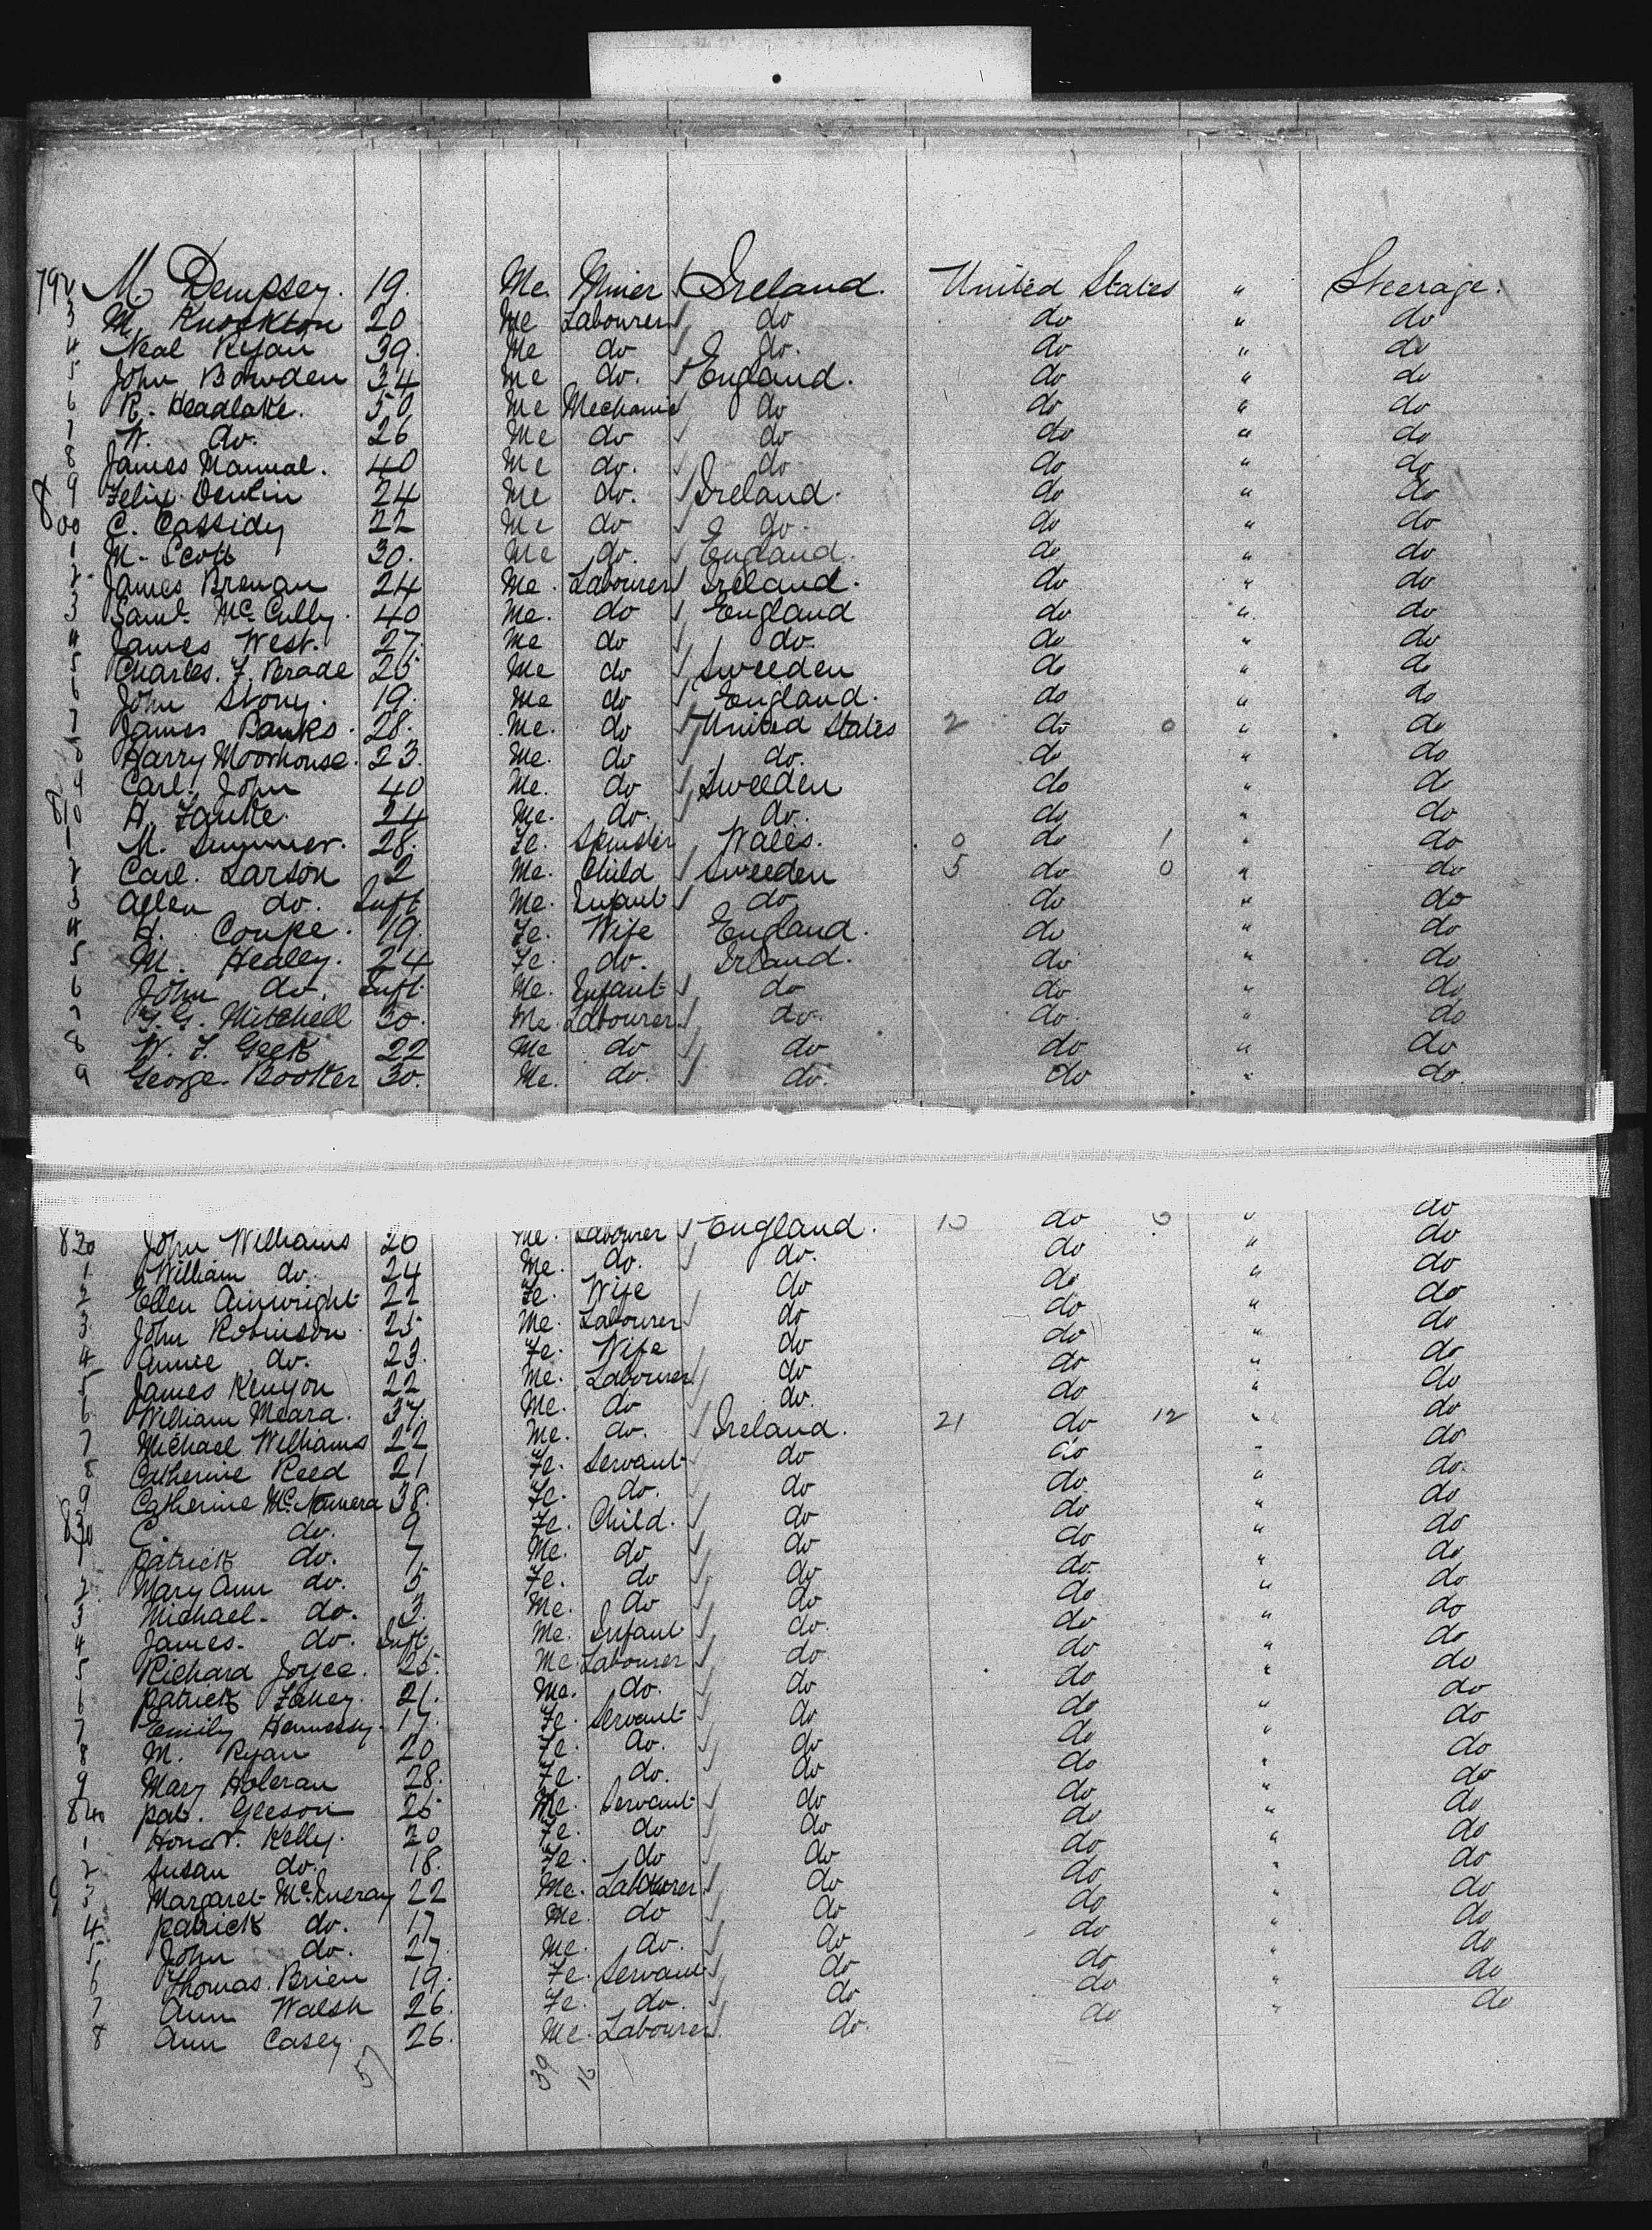 792 M. Dempsey. 19. Me. Miner Ireland. United States " Steerage.
3 M. Knockton 20 Me Labourer do do " do
4 Neal Ryan 39. Me do do. do " do
5 John Bowden 34 Me do. England. do " do
6 R. Headlake. 50 Me Mechanic do do " do
7 W. do. 26 Me do do do " do
8 James Manual. 40 Me do. do do " do
9 Felix Devlin 24 Me do. Ireland. do " do
800 C. Cassidy 22 Me do do. do " do
1 M. Scott 30. Me do. England. do " do
2 James Brenan 24 Me. Labourer Ireland. do " do
3 Saml. McCully. 40 Me. do England do " do
4 James West. 27. Me do do. do " do
5 Charles. F. Brade 25 Me do Sweeden do " do
6 John Story. 19. Me do England. do " do
7 James Banks. 28. Me. do United States 2 do 0 " do
8 Harry Moorhouse. 23. Me. do do. do " do
9 Carl. John 40 Me. do Sweeden do " do
810 A. Zanke. 24 Me. do. do. do " do
1 M. Summer. 28. Fe. Spinster Wales. 0 do 1 " do
2 Carl. Larson 2 Me. Child Sweeden 5 do 0 " do
3 Allen do. Inft Me. Infant do do " do
4 H. Coupe. 19. Fe. Wife England. do " do
5 M. Healey. 24 Fe. do. Irland. do " do
6 John do. Inft. Me. Infant do do " do
7 Mitchell 30. Me. Labourer do. do. " do
8 W. F. Geek 22 Me do do do " do
9 George. Booker 30. Me. do. do. do " do.
820 John Williams 20 Me. Labourer England. do " do
1 William do. 24 Me. do. do. do " do
2 Ellen Ainwright 22 Fe. Wife do do " do
3 John Robinson 25 Me. Labourer do do " do
4 Annie do. 23. Fe. Wife do do " do
5 James Kenyon 22 Me. Labourer do do " do
6 William Meara. 37. Me. do do. do " do
7 Michael Williams 22 Me. do. Ireland. 21 do 12 " do
8 Catherine Reed 21 Fe. Servant do do " do
9 Catherine McNamera 38. Fe. do. do do " do.
830 C. do. 9 Fe. Child. do do " do
1 Patrick do. 7 Me. do do do " do
2 Mary Ann do. 5 Fe. do do do. " do
3 Michael. do. 3. Me. do do do " do
4 James. do. Inft. Me. Infant do. do " do
5 Richard Joyce. 25. Me. Labourer do do " do
6 Patrick Fahey. 21. Me. do. do do " do
7 Emily Hennessy. 17. Fe. Servant do do " do
8 M. Ryan 20 Fe. do. do do " do
9 Mary Holeran 28. Fe. do. do do " do
840 Pat. Gleeson 25 Me. Servant do do " do
1 Honor. Kelly. 20 Fe. do do do " do
2 Susan do. 18. Fe. do do do " do
3 Margaret 22 Me. Labourer do do " do
4 Patrick do. 17 Me. do do do " do
5 John do. 27. Me. do. do do " do
6 Thomas. Brien 19. Fe. Servant do do " do
7 Ann Walsh 26. Fe. do. do do " do
8 Ann Casey. 26. Me. Labourer do. do " do
57 39